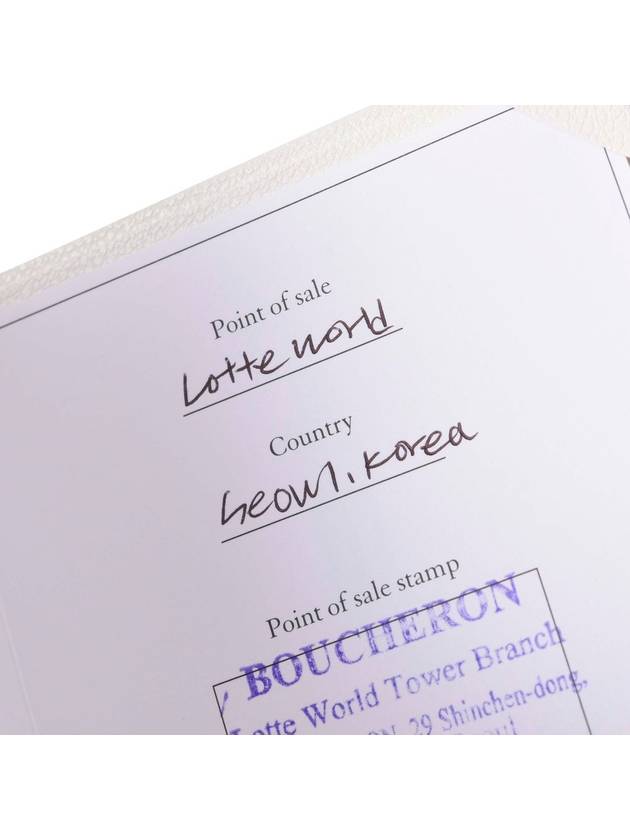 Point of sale
Lotte World
Country
Seoul, Korea
Point of sale stamp
BOUCHERON
Lotte World Tower Branch
29 Shinchen-dong,